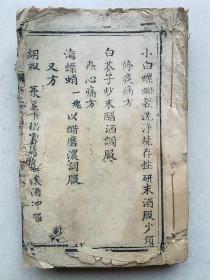 小白螺螄殼洗淨燒存性研末酒服少須
傳痰痛方
白芥子炒末醋酒調服
痰心痛方
海螵蛸一塊以醋磨濃調服
又方
胡椒 酒冲服